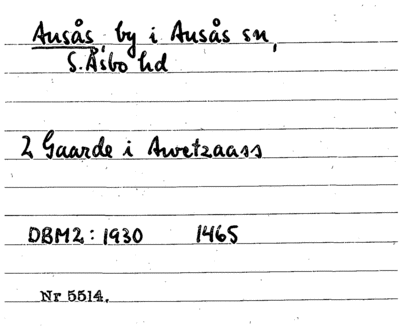 Ausås, by i Ausås sn,
S. Åsbo hd
2 Gaarde i Awetzaass
DBM2: 1930 1465
Nr 5514.